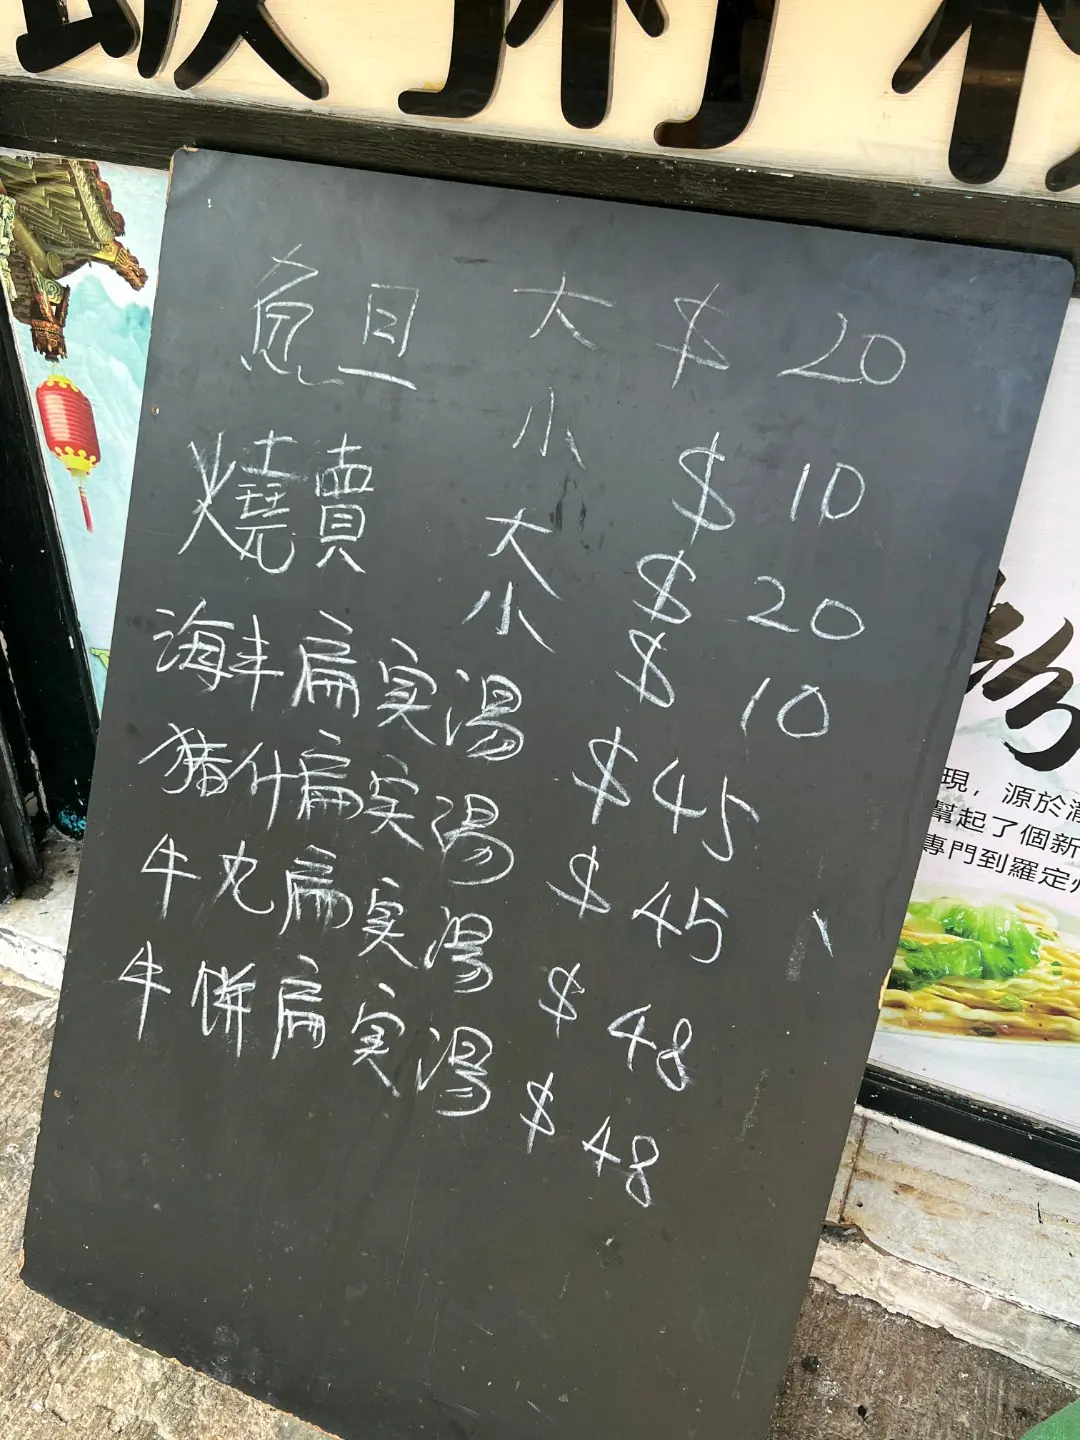 魚旦 大 $ 20
小 $ 10
燒賣 大 $ 20
小 $ 10
海丰扁实湯 $45
猪什扁实湯 $45
牛丸扁实湯 $48
牛餅扁实湯 $48
粉
現，源於
幫起了個新
專門到羅定